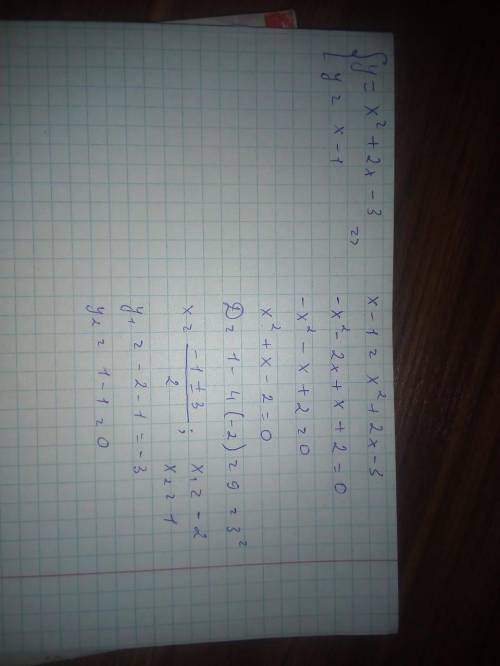 { y = x² + 2x - 3
y = x - 1 =>
x - 1 = x² + 2x - 3
-x² - 2x + x + 2 = 0
-x² - x + 2 = 0
x² + x - 2 = 0
D = 1 - 4(-2) = 9 = 3²
x = (-1 ± 3)/2 ; x₁ = -2
x₂ = 1
y₁ = -2 - 1 = -3
y₂ = 1 - 1 = 0